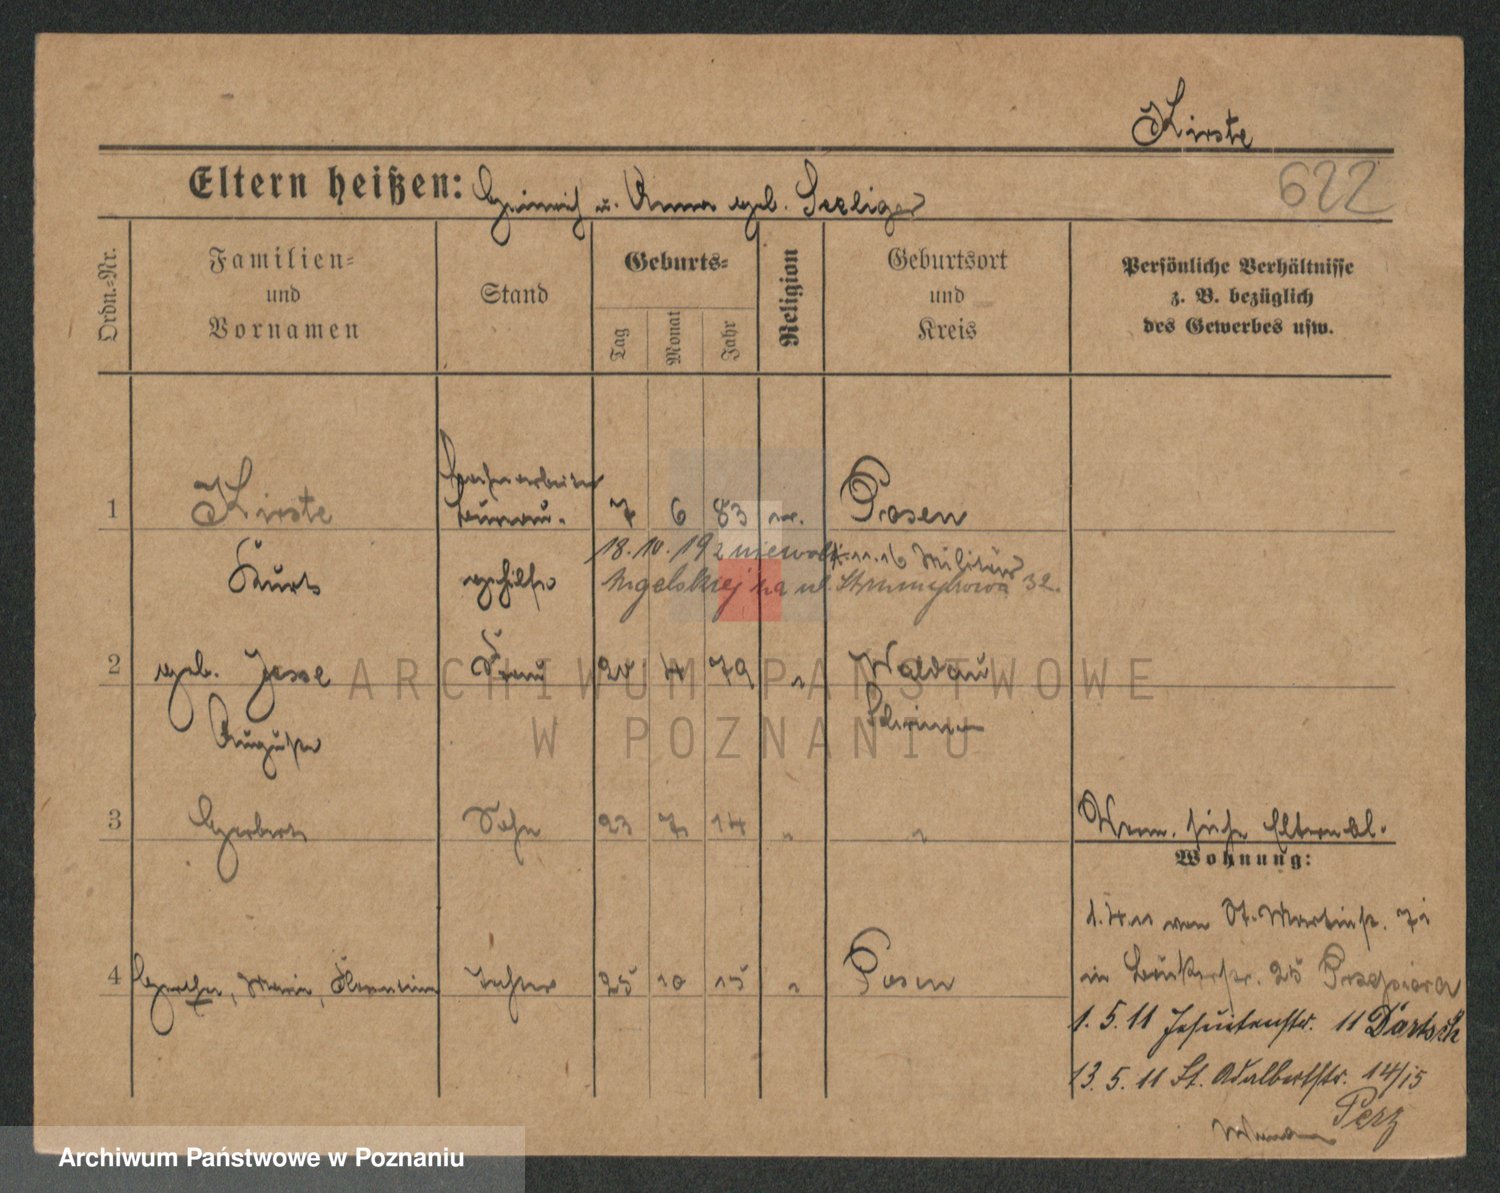 Kirste
622
Eltern heißen: Heinrich u. Anna geb. Seeliger
Ordn.-Nr.
Familien-
und
Vornamen
Stand
Geburts-
Tag
Monat
Jahr
Religion
Geburtsort
und
Kreis
Persönliche Verhältnisse
z. B. bezüglich
des Gewerbes usw.
1 Kirste 7 6 83 Posen
Kurt gehilfe
18.10.19 11.16 Militär
Angelskiej na ul. 32.
2 geb. Jesse Frau 24 4 79 " Waldau
Auguste Schrimm
3 Herbert Sohn 23 7. 14 " "
Anm. siehe Elternbl.
Wohnung:
4 Marie, Tochter 25 10 15 " Posen
1.4.11 von St. Martinstr. 71
in Bäckerstr. 25
1.5.11 Jesuitenstr. 11
13.5.11 St. Adalbertstr. 14/15
Perz
ARCHIWUM PAŃSTWOWE
W POZNANIU
Archiwum Państwowe w Poznaniu